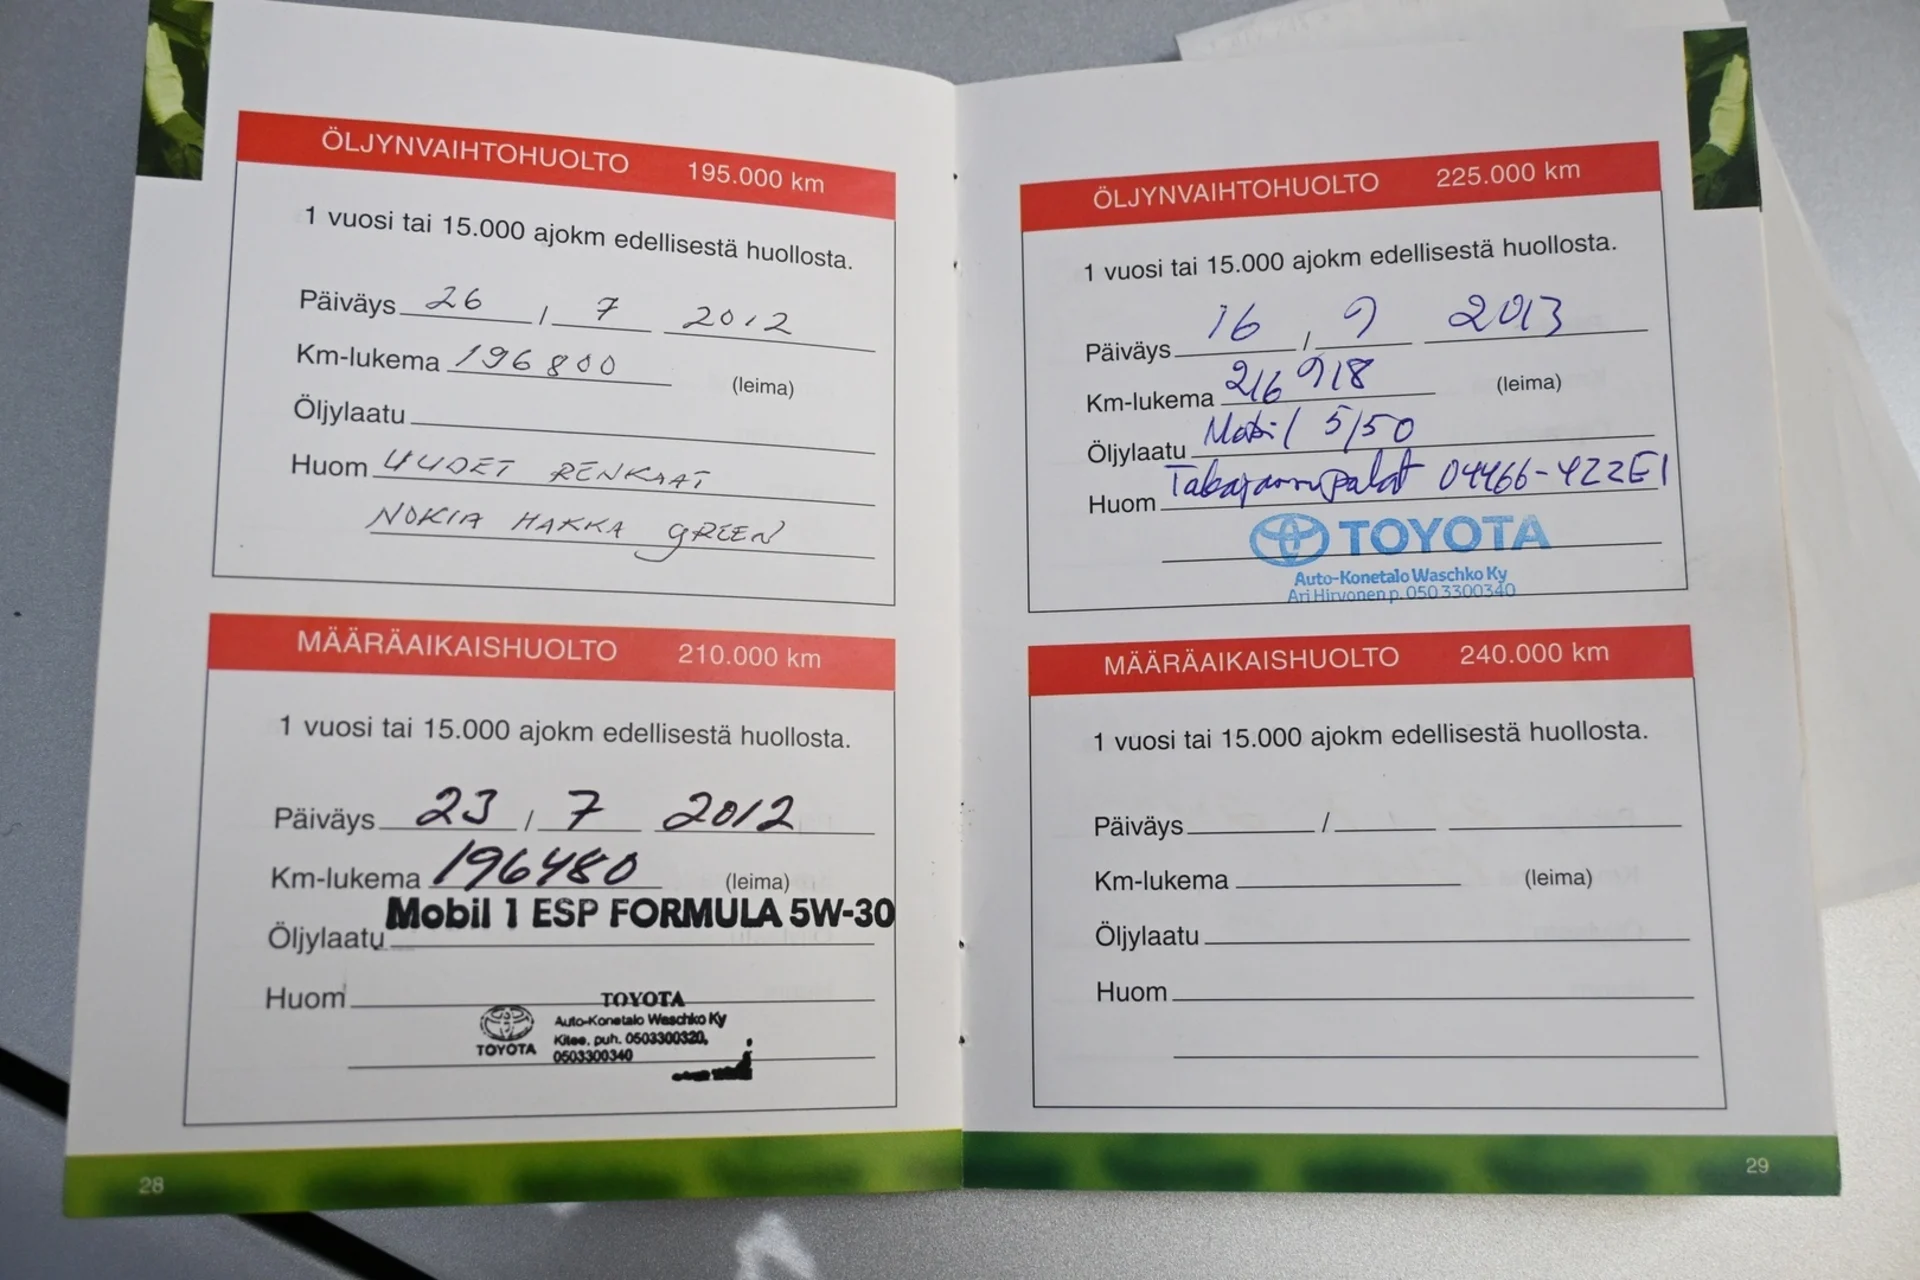 ÖLJYNVAIHTOHUOLTO 195.000 km
1 vuosi tai 15.000 ajokm edellisestä huollosta.
Päiväys 26 / 7 2012
Km-lukema 196800 (leima)
Öljylaatu
Huom UUDET RENKAAT
NOKIA HAKKA GREEN
MÄÄRÄAIKAISHUOLTO 210.000 km
1 vuosi tai 15.000 ajokm edellisestä huollosta.
Päiväys 23 / 7 2012
Km-lukema 196480 (leima)
Mobil 1 ESP FORMULA 5W-30
Öljylaatu
Huom
TOYOTA
Auto-Konetalo Waschko Ky
Kitee, puh. 0503300320,
TOYOTA 0503300340
28
ÖLJYNVAIHTOHUOLTO 225.000 km
1 vuosi tai 15.000 ajokm edellisestä huollosta.
Päiväys 16 / 9 2013
Km-lukema 216918 (leima)
Öljylaatu Mobil 5/50
Huom Takajarrupalat 04466-YZZE1
TOYOTA
Auto-Konetalo Waschko Ky
Ari Hirvonen p. 050 3300340
MÄÄRÄAIKAISHUOLTO 240.000 km
1 vuosi tai 15.000 ajokm edellisestä huollosta.
Päiväys /
Km-lukema (leima)
Öljylaatu
Huom
29